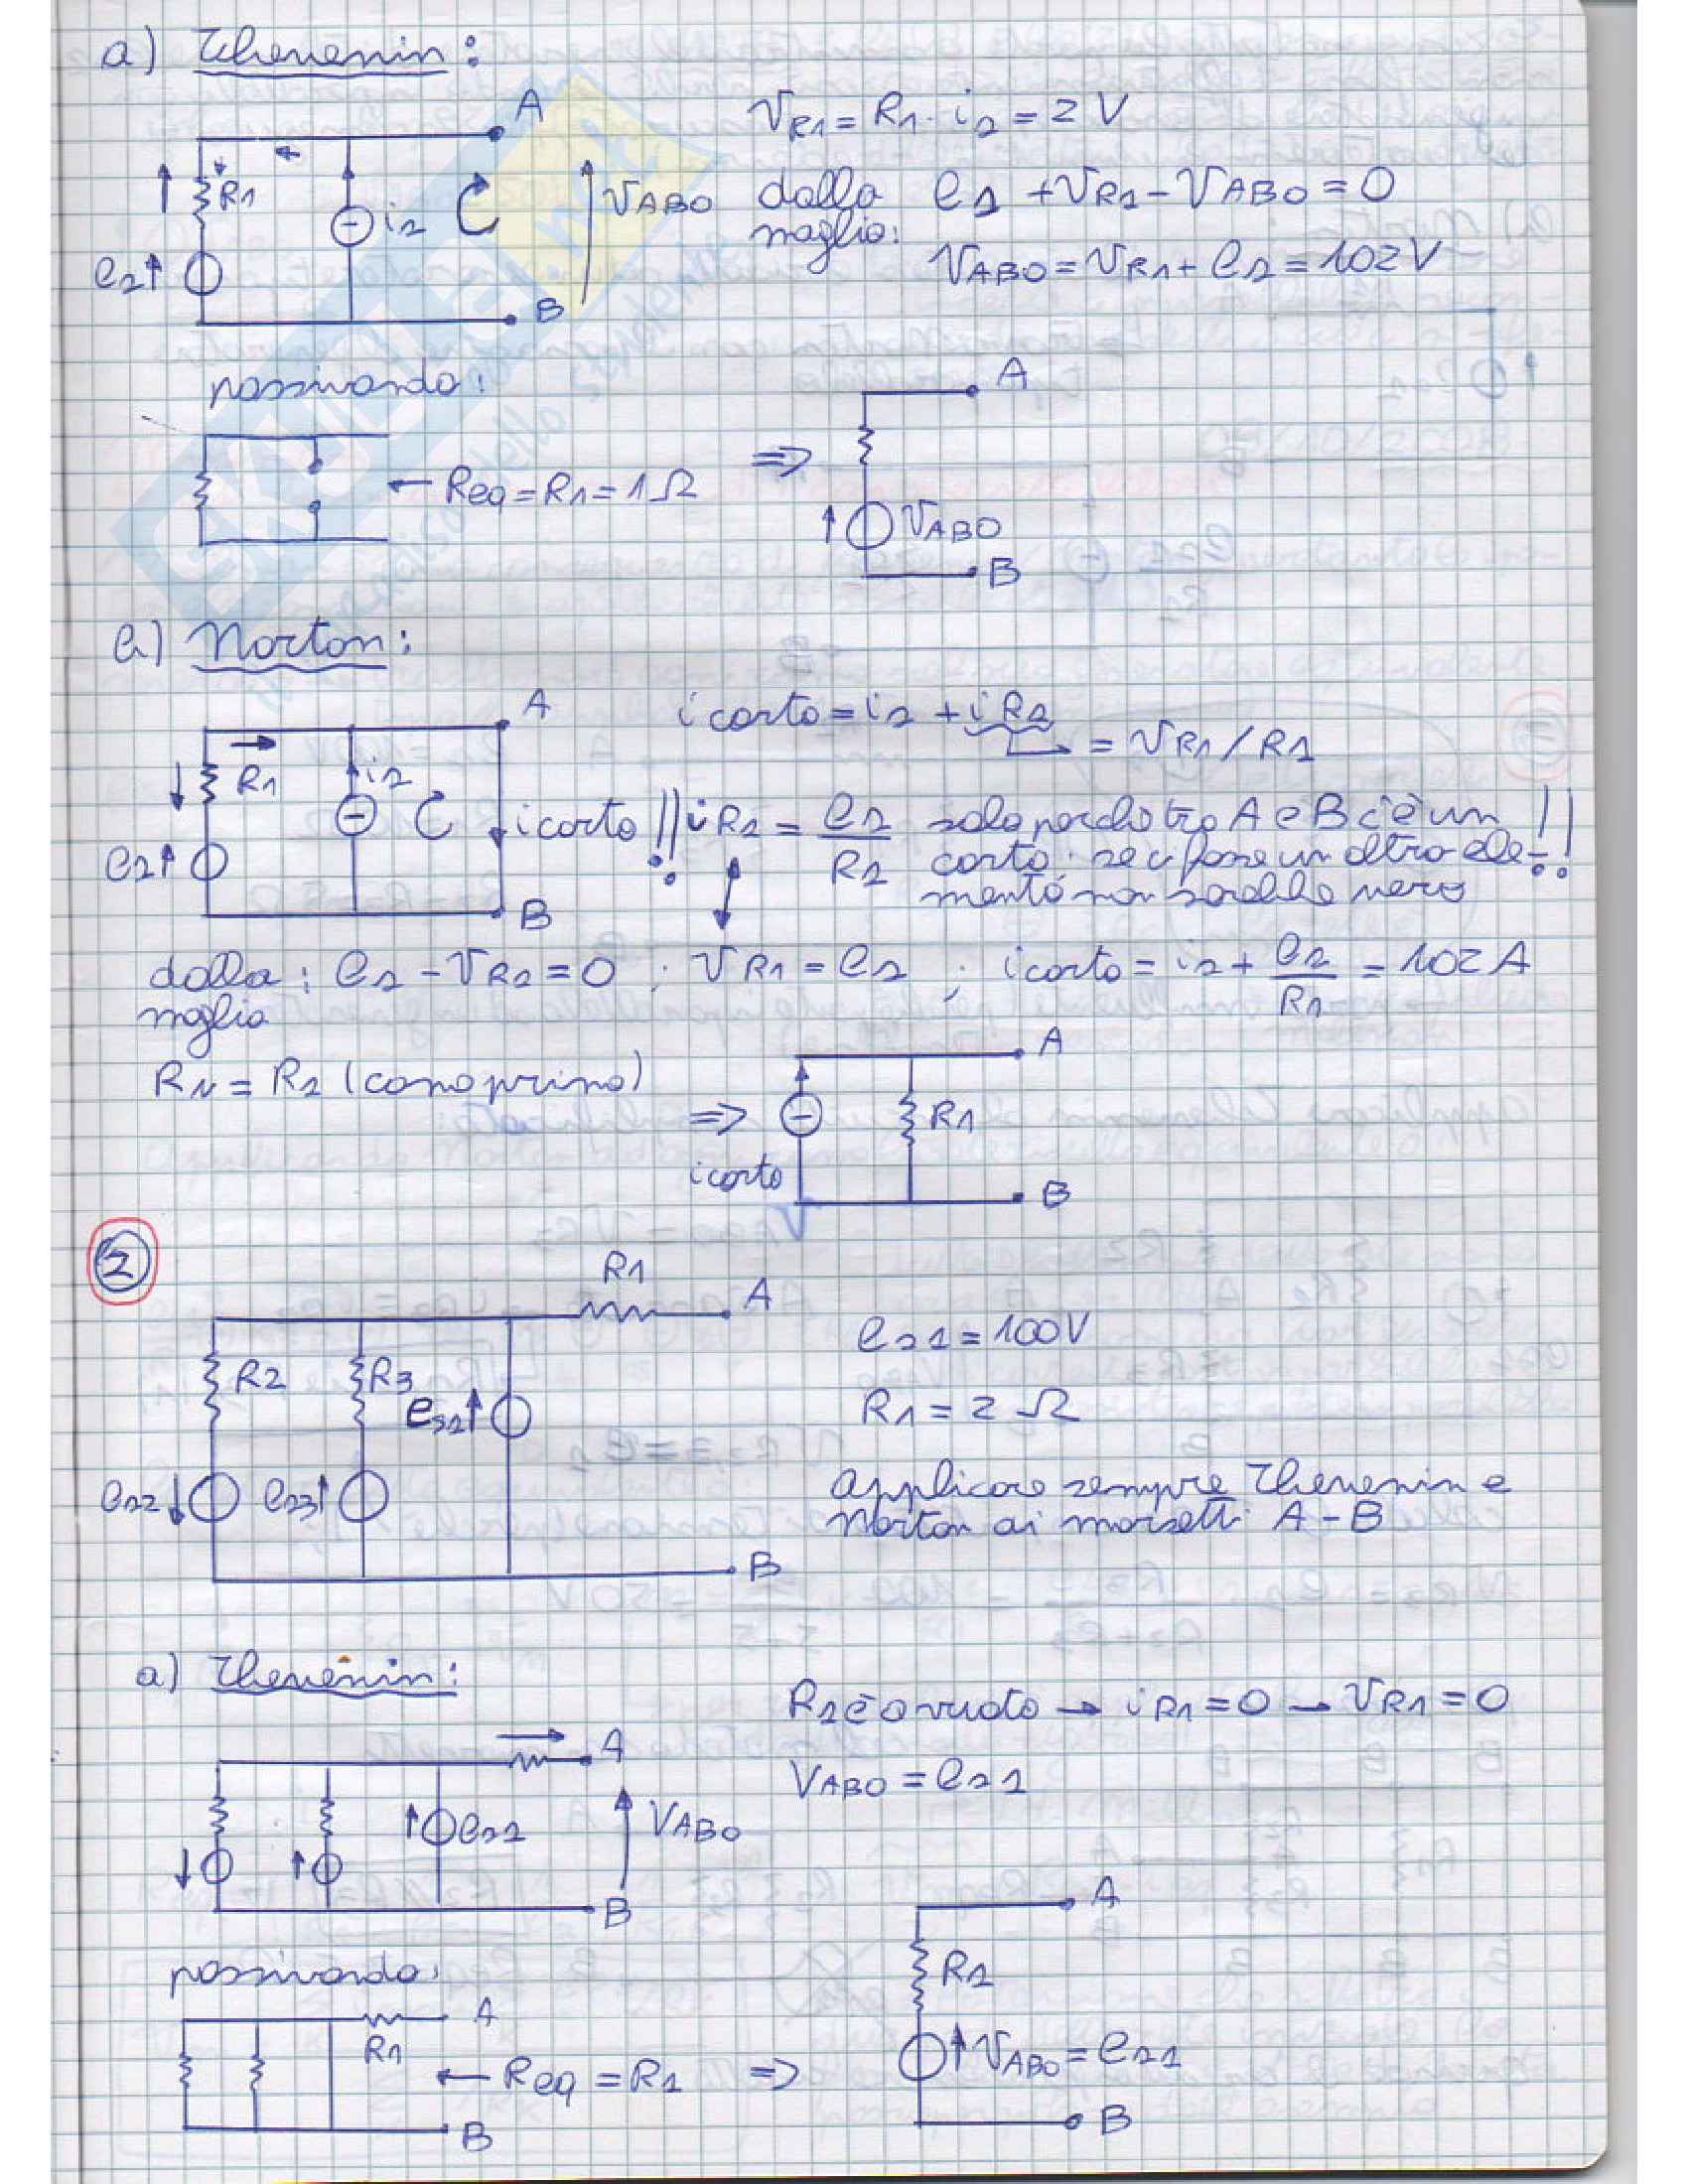 a) Thevenin:
A
R1
is
es
VABO
B
VR1 = R1 · is = 2 V
dalla maglia: es + VR1 - VABO = 0
VABO = VR1 + es = 102 V
passivando:
Req = R1 = 1 Ω
⇒
A
VABO
B
b) Norton:
A
R1
is
es
i corto
B
i corto = is + iR1
= VR1 / R1
!! iR1 = es / R1 solo perchè tra A e B c'è un !!
corto: se ci fosse un altro ele-
mento non sarebbe vero
dalla maglia: es - VR1 = 0 ; VR1 = es ; i corto = is + es / R1 = 102 A
RN = R1 (come prima)
⇒
A
R1
i corto
B
2
R1
A
R2
R3
es1
es2
es3
B
es1 = 100V
R1 = 2 Ω
Applicare sempre Thevenin e
Norton ai morsetti A - B
a) Thevenin:
A
es1
VABO
B
R1 è a vuoto → iR1 = 0 → VR1 = 0
VABO = es1
passivando:
A
R1
Req = R1
⇒
B
A
R1
VABO = es1
B